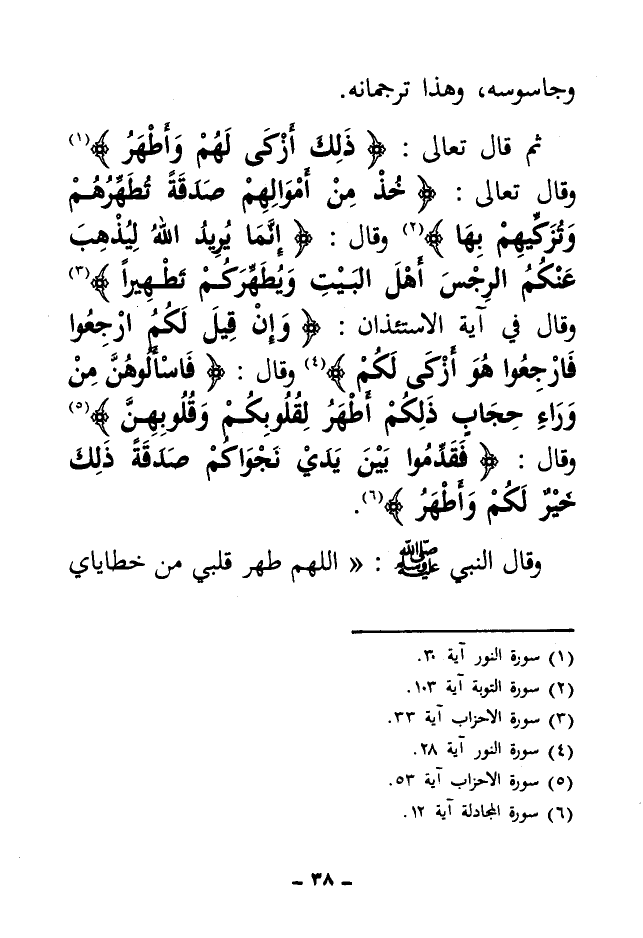 وجاسوسه، وهذا ترجمانه.
ثم قال تعالى : ﴿ ذَلِكَ أَزْكَى لَهُمْ وَأَطْهَرُ ﴾(١)
وقال تعالى : ﴿ خُذْ مِنْ أَمْوَالِهِمْ صَدَقَةً تُطَهِّرُهُمْ
وَتُزَكِّيهِمْ بِهَا ﴾(٢) وقال : ﴿ إِنَّمَا يُرِيدُ اللهُ لِيُذْهِبَ
عَنْكُمُ الرِجْسَ أَهْلَ البَيْتِ وَيُطَهِّرَكُمْ تَطْهِيراً ﴾(٣)
وقال في آية الاستئذان : ﴿ وَإِنْ قِيلَ لَكُمُ ارْجِعُوا
فَارْجِعُوا هُوَ أَزْكَى لَكُمْ ﴾(٤) وقال : ﴿ فَاسْأَلُوهُنَّ مِنْ
وَرَاءِ حِجَابٍ ذَلِكُمْ أَطْهَرُ لِقُلُوبِكُمْ وَقُلُوبِهِنَّ ﴾(٥)
وقال : ﴿ فَقَدِّمُوا بَيْنَ يَدَيْ نَجْوَاكُمْ صَدَقَةً ذَلِكَ
خَيْرٌ لَكُمْ وَأَطْهَرُ ﴾(٦).
وقال النبي ﷺ : « اللهم طهر قلبي من خطاياي
(١) سورة النور آية ٣٠.
(٢) سورة التوبة آية ١٠٣.
(٣) سورة الاحزاب آية ٣٣.
(٤) سورة النور آية ٢٨.
(٥) سورة الاحزاب آية ٥٣.
(٦) سورة المجادلة آية ١٢.
- ٣٨ -